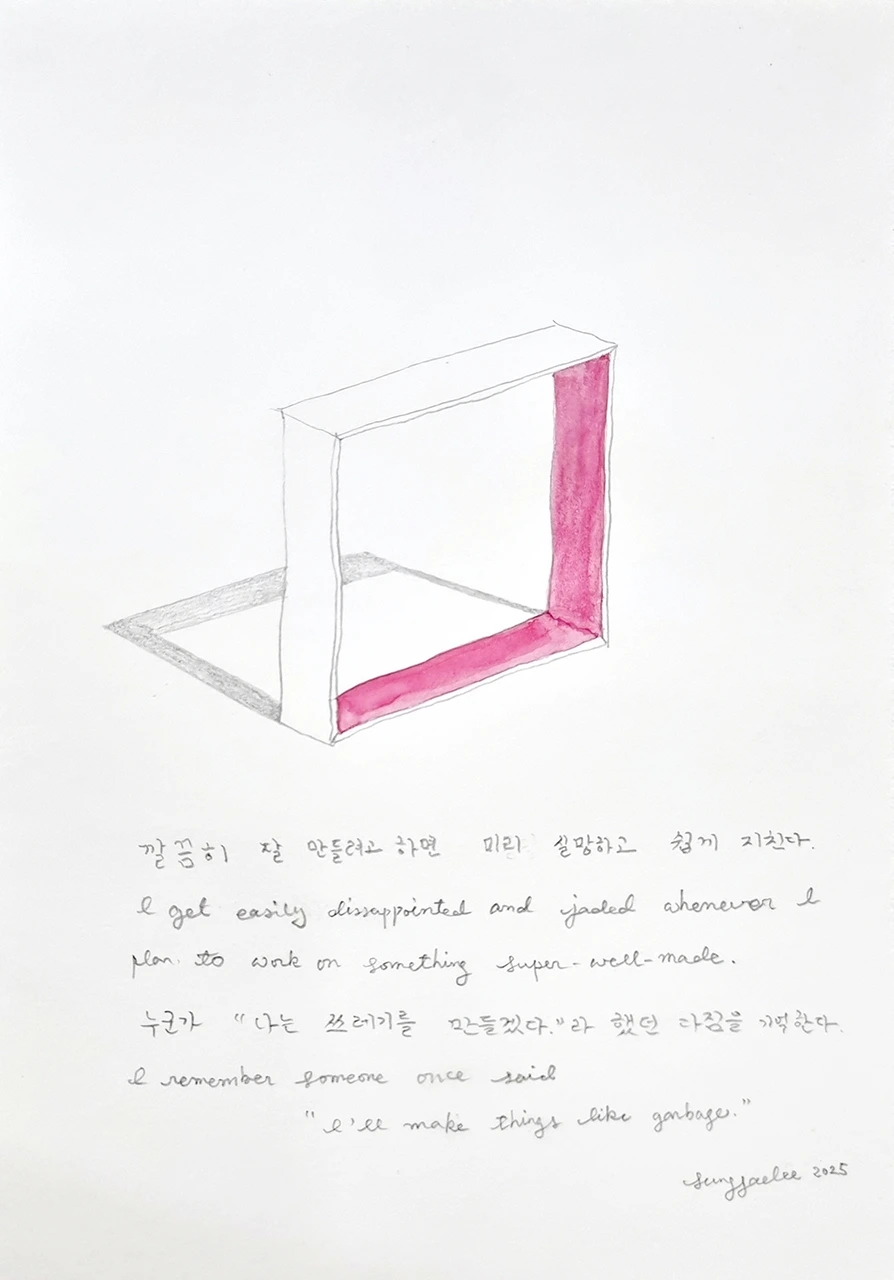 깔끔히 잘 만들려고 하면 미리 실망하고 쉽게 지친다.
I get easily dissappointed and jaded whenever I
plan to work on something super-well-made.
누군가 “나는 쓰레기를 만들겠다.”라 했던 다짐을 기억한다.
I remember someone once said
“I'll make things like garbage.”
sungjaelee 2025